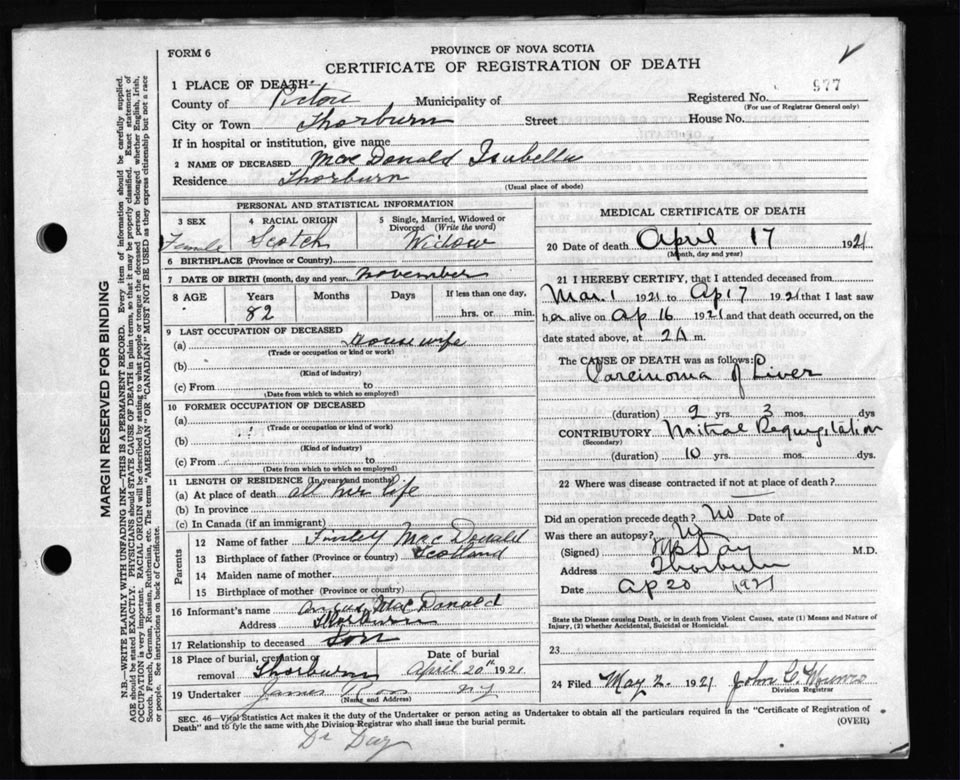 FORM 6
PROVINCE OF NOVA SCOTIA
CERTIFICATE OF REGISTRATION OF DEATH
1 PLACE OF DEATH
County of Pictou Municipality of
Registered No. 977
(For use of Registrar General only)
City or Town Thorburn Street House No.
If in hospital or institution, give name
2 NAME OF DECEASED MacDonald Isabella
Residence Thorburn
(Usual place of abode)
PERSONAL AND STATISTICAL INFORMATION
3 SEX Female
4 RACIAL ORIGIN Scotch
5 Single, Married, Widowed or Divorced (Write the word) Widow
6 BIRTHPLACE (Province or Country)
7 DATE OF BIRTH (month, day and year) November
8 AGE Years Months Days If less than one day,
82 hrs. or min.
9 LAST OCCUPATION OF DECEASED
(a) House wife
(Trade or occupation or kind or work)
(b)
(Kind of industry)
(c) From to
(Date from which to which so employed)
10 FORMER OCCUPATION OF DECEASED
(a)
(Trade or occupation or kind or work)
(b)
(Kind of industry)
(c) From to
(Date from which to which so employed)
11 LENGTH OF RESIDENCE (In years and months)
(a) At place of death all her life
(b) In province
(c) In Canada (if an immigrant)
Parents
12 Name of father Finley MacDonald
13 Birthplace of father (Province or country) Scotland
14 Maiden name of mother
15 Birthplace of mother (Province or country)
16 Informant's name Angus MacDonald
Address Thorburn
17 Relationship to deceased Son
18 Place of burial, cremation or removal Thorburn
Date of burial April 20th 1921
19 Undertaker James Ross N.G.
(Name and Address)
MEDICAL CERTIFICATE OF DEATH
20 Date of death April 17 1921
(Month, day and year)
21 I HEREBY CERTIFY, that I attended deceased from
Mar. 1 1921 to Ap 17 1921 that I last saw
her alive on Ap 16 1921 and that death occurred, on
date stated above, at 2A m.
The CAUSE OF DEATH was as follows:
Carcinoma of Liver
(duration) 2 yrs. 3 mos. dys
CONTRIBUTORY Mitral Regurgitation
(Secondary)
(duration) 10 yrs. mos. dys.
22 Where was disease contracted if not at place of death?
Did an operation precede death? No Date of
Was there an autopsy? No
(Signed) Day M.D.
Address Thorburn
Date Ap 20 1921
State the Disease causing Death, or in death from Violent Causes, state (1) Means and Nature of Injury, (2) whether Accidental, Suicidal or Homicidal.
23
24 Filed May 2. 1921 John C. Munro
Division Registrar
SEC. 46—Vital Statistics Act makes it the duty of the Undertaker or person acting as Undertaker to obtain all the particulars required in the "Certificate of Registration of
Death" and to fyle the same with the Division Registrar who shall issue the burial permit. (OVER)
Dr Day
MARGIN RESERVED FOR BINDING
N.B.—WRITE PLAINLY WITH UNFADING INK—THIS IS A PERMANENT RECORD. Every item of information should be carefully supplied.
AGE should be stated EXACTLY. PHYSICIANS should STATE CAUSE OF DEATH in plain terms, so that it may be properly classified. Exact statement of
OCCUPATION is very important. RACIAL ORIGIN will be described by stating to what people or tongue the deceased person belonged whether English, Irish,
Scotch, French, German, Russian, Ruthenian, etc. The terms "AMERICAN" OR "CANADIAN" MUST NOT BE USED as they express citizenship but not a race
or people. See instructions on back of Certificate.